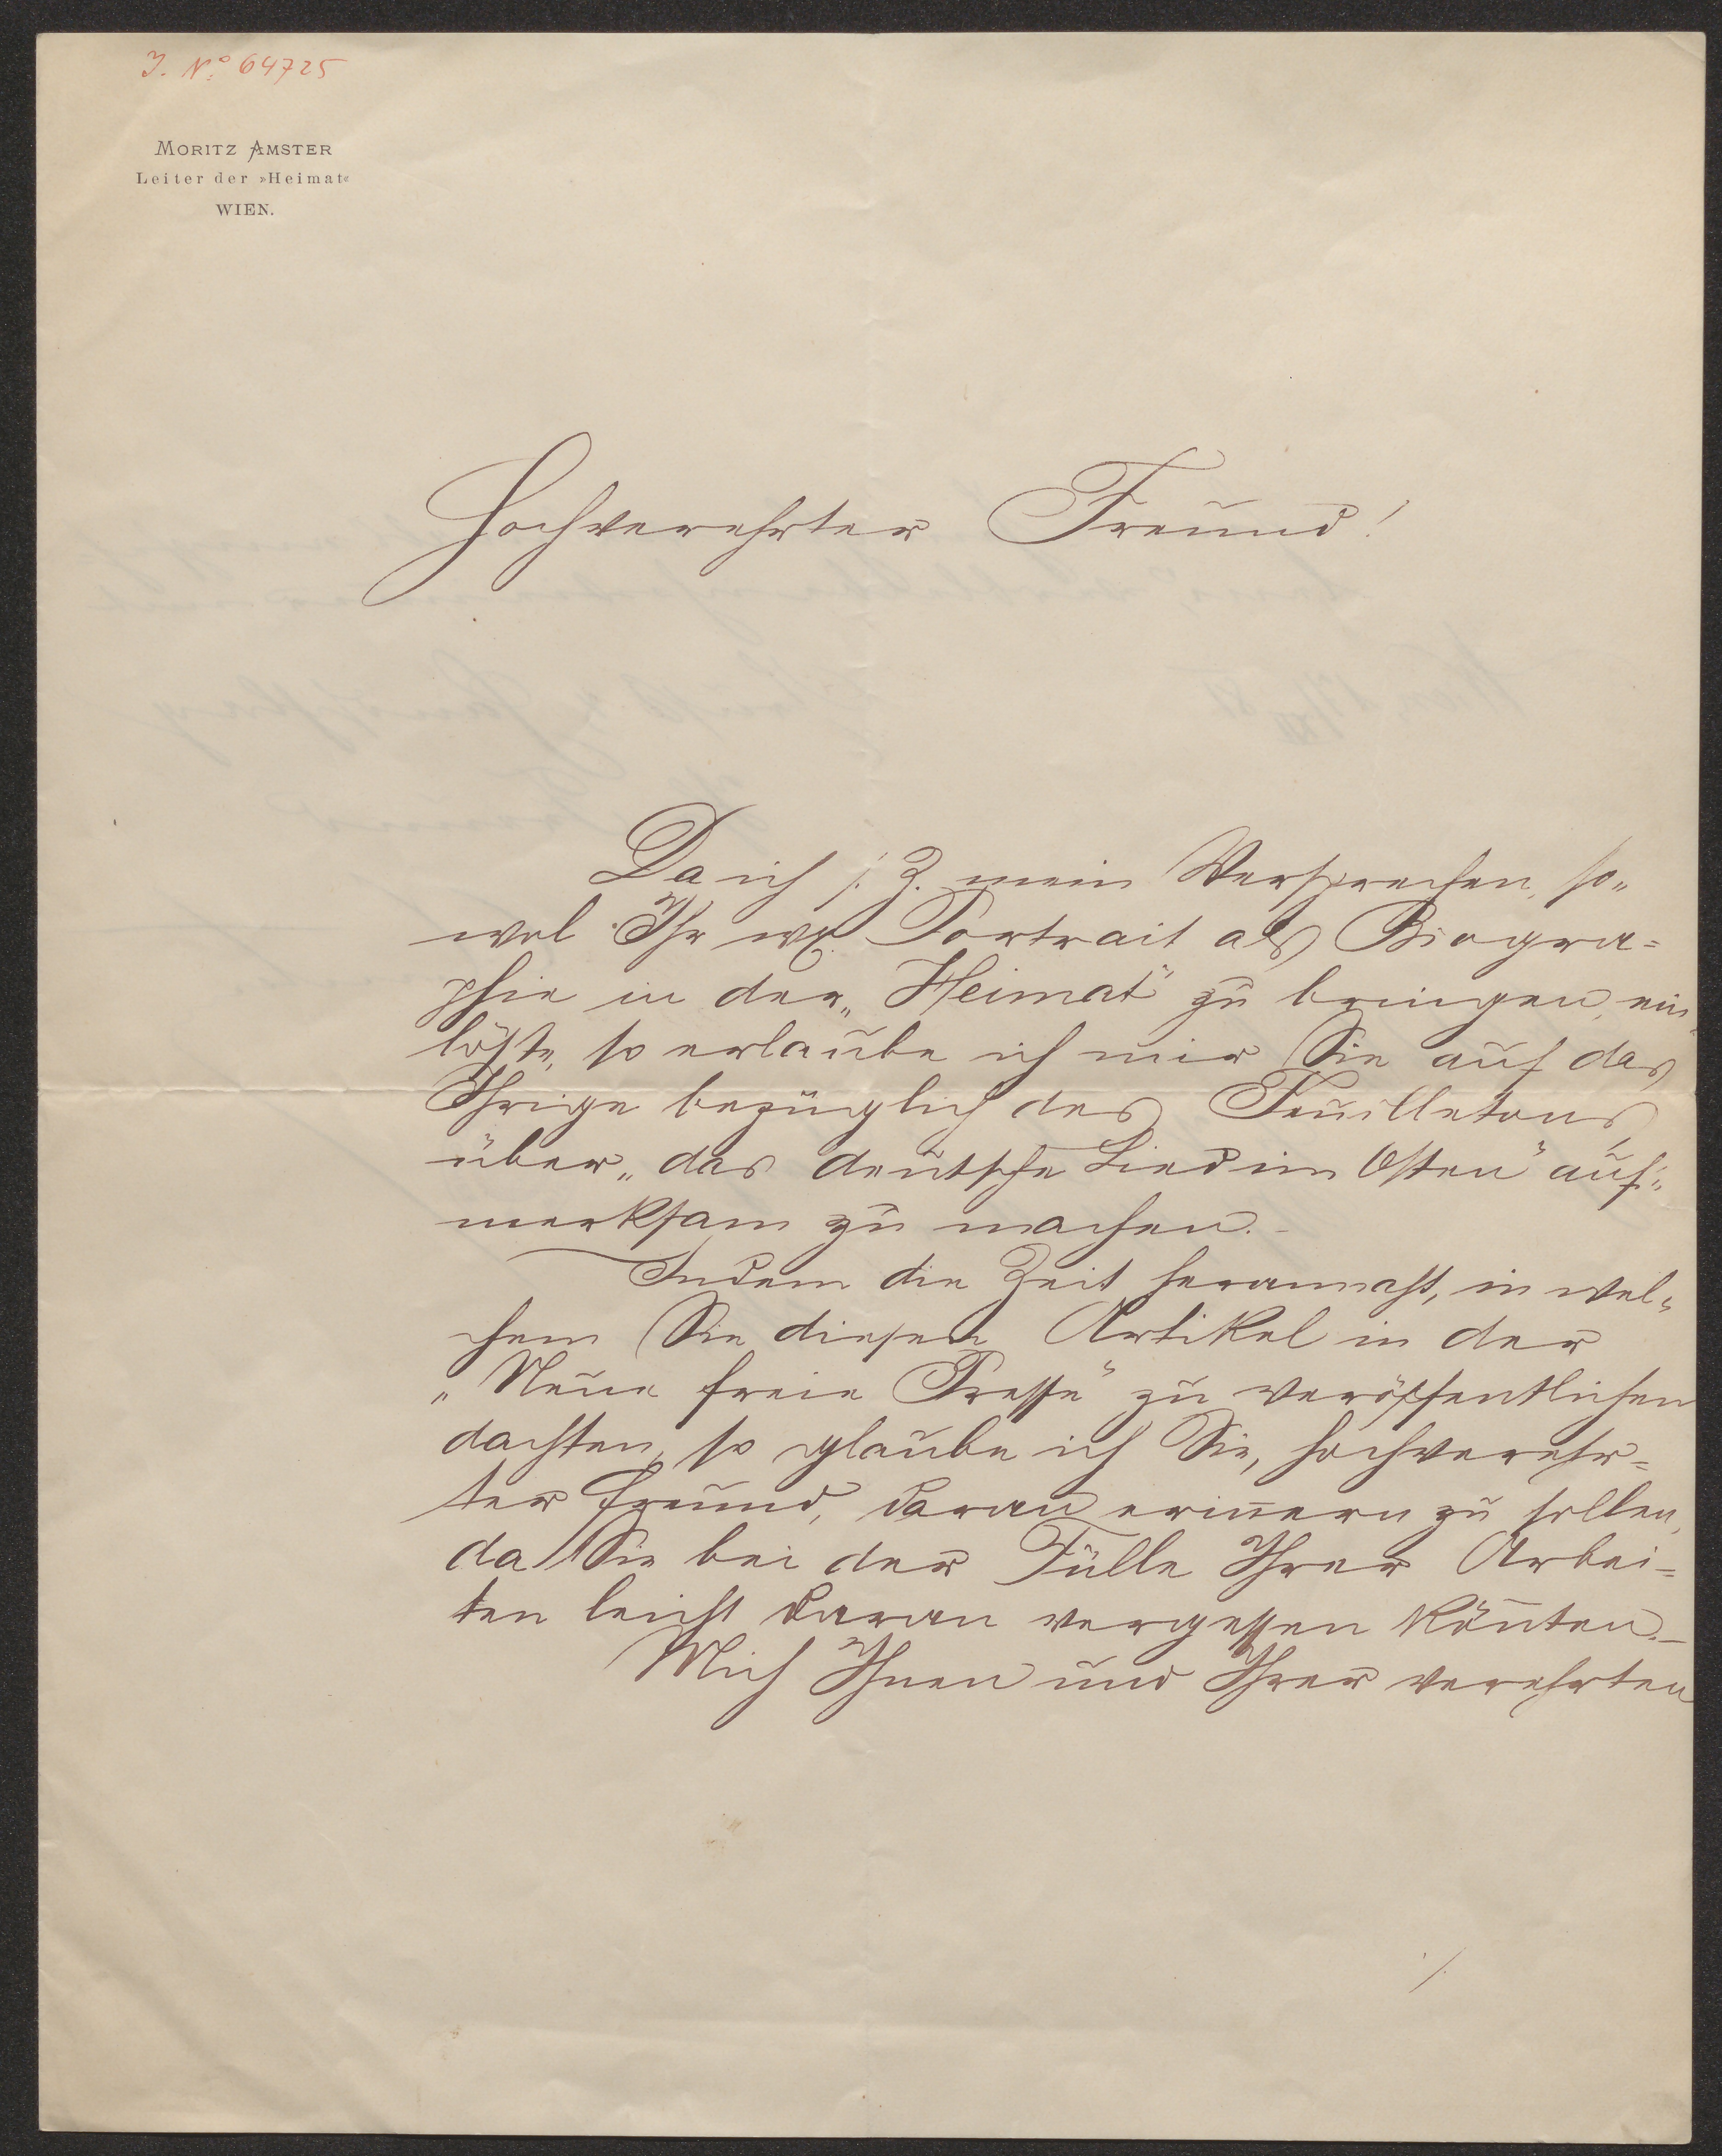 I. N.º 64725
MORITZ AMSTER
Leiter der »Heimat«
WIEN.
Hochverehrter Freund!
Da ich s. Z. mein Versprechen, so„
wol Ihr w. Portrait als Biogra=
phie in der „Heimat“ zu bringen, ein„
löste, so erlaube ich mir Sie auf das
Ihrige bezüglich des Feuilletons
über „das deutsche Lied im Osten“ auf„
merksam zu machen. –
Indem die Zeit herannaht, in wel„
chem Sie diesen Artikel in der
„Neue freie Presse“ zu veröffentlichen
dachten, so glaube ich Sie, hochverehr=
ter Freund, daran erin̄ern zu sollen,
da Sie bei der Fülle Ihrer Arbei=
ten leicht daran vergessen kön̄ten. –
Mich Ihnen und Ihrer verehrten
./.